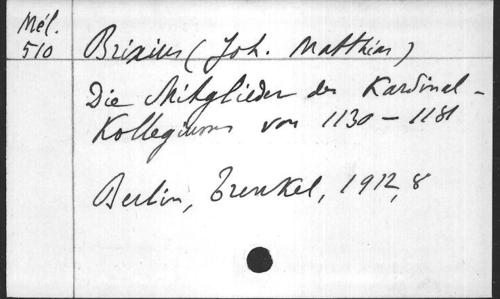 Mél.
510
Brixius (Joh. Matthias)
Die Mitglieder des Kardinal-
Kollegiums von 1130 - 1181
Berlin, Trenkel, 1912, 8